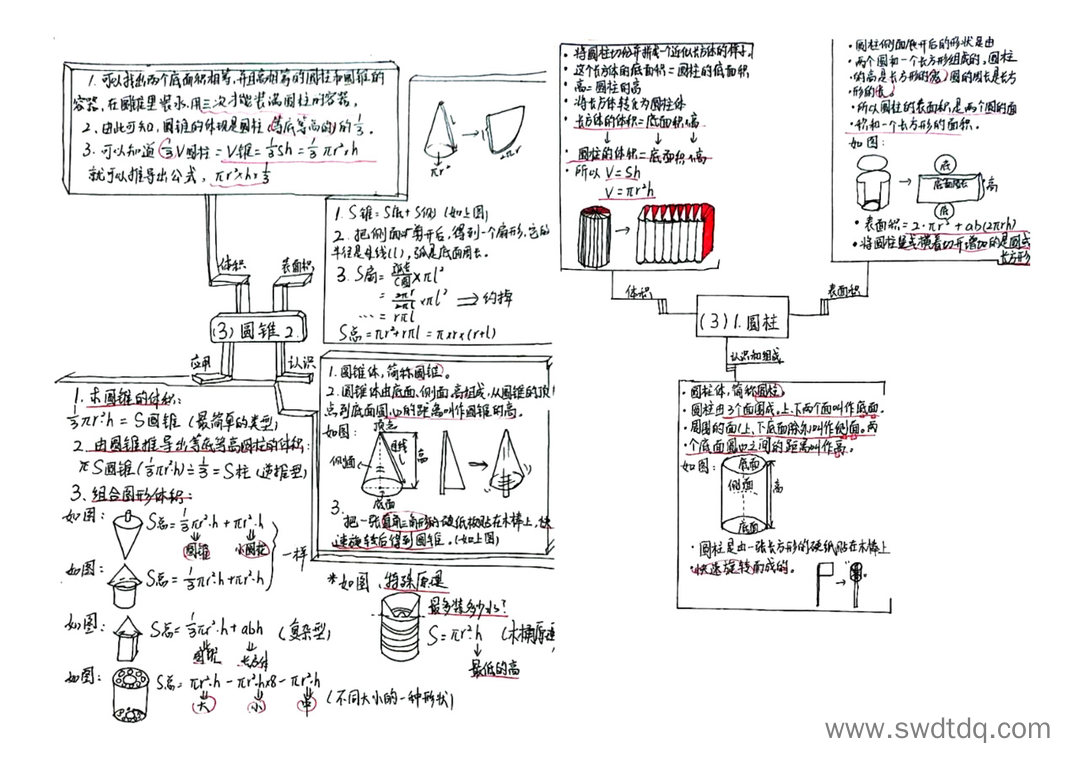 1. 可以找出两个底面积相等,并且高相等的圆柱和圆锥的
容器,在圆锥里装水,用三次才能装满圆柱的容器。
2. 由此可知,圆锥的体积是圆柱(等底等高的)的1/3。
3. 可以知道 1/3V圆柱=V锥=1/3Sh=1/3πr²h
就可以推导出公式, πr²×h×1/3
πr²
2πr
1. S锥=S底+S侧 (如上图)
2. 把侧面剪开后,得到一个扇形,它的
半径是母线(l),弧是底面周长。
3. S扇=弧长/C圆×πl²
=2πr/2πl×πl² ⇒约掉
…=rπl
S总=πr²+rπl=π×r×(r+l)
体积
表面积
(3)圆锥2.
应用
认识
1. 求圆锥的体积:
1/3πr²h=S圆锥 (最简单的类型)
2. 由圆锥推导出等底等高圆柱的体积:
S圆锥(1/3πr²h)÷1/3=S柱 (逆推型)
3. 组合图形体积:
如图:
S总=1/3πr²·h+πr²·h
圆锥
小圆柱
一样
如图:
S总=1/3πr²·h+πr²·h
如图:
S总=1/3πr²·h+abh (复杂型)
圆锥
长方体
如图:
S总=πr²·h-πr²·h×8-πr²·h
大
小
中
(不同大小的一种形状)
1. 圆锥体,简称圆锥。
2. 圆锥体由底面、侧面、高组成,从圆锥的顶
点到底面圆心的距离叫作圆锥的高。
如图:
顶点
母线
高
侧面
底面
3.
把一张直角三角形的硬纸板贴在木棒上,快
速旋转后得到圆锥。(如上图)
*如图、特殊原理
最多装多少水?
S=πr²·h
(木桶原理
最低的高
·将圆柱切分并拼成一个近似长方体的样子。
·这个长方体的底面积=圆柱的底面积
·高=圆柱的高
·将长方体转化为圆柱体
·长方体的体积=底面积×高
·圆柱的体积=底面积×高
·所以 V=Sh
V=πr²h
·圆柱侧面展开后的形状是由
·两个圆和一个长方形组成的,圆柱
·的高是长方形的宽,圆的周长是长方
形的长。
·所以圆柱的表面积,是两个圆的面
·积和一个长方形的面积。
如图:
底
底面周长
高
底
·表面积=2·πr²+ab(2πrh)
·将圆柱竖或横着切开增加的是圆或
长方形
体积
表面积
(3)1.圆柱
认识和组成
·圆柱体,简称圆柱。
·圆柱由3个面围成。上、下两个面叫作底面。
·周围的面(上、下底面除外)叫作侧面。两
·个底面圆心之间的距离叫作高。
如图:
底面
侧面
高
底面
·圆柱是由一张长方形的硬纸贴在木棒上
快速旋转而成的。
www.swdtdq.com